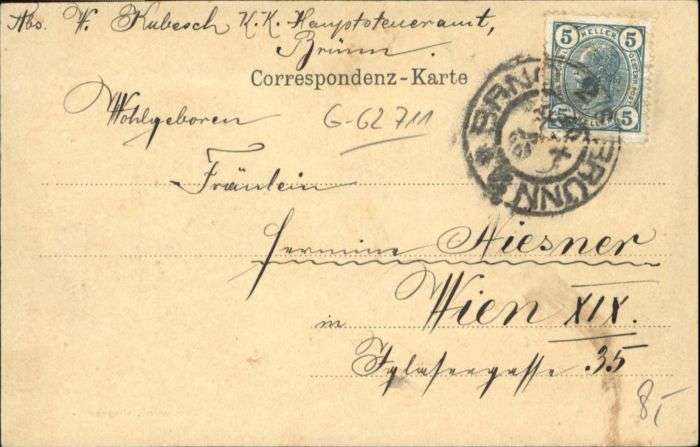 Abs. V. Kubesch K.K. Hauptsteueramt,
Brünn.
Correspondenz-Karte
5 HELLER 5
5 HELLER 5
BRNO
BRÜNN
Wohlgeboren
G-62711
Fräulein
Hermine Niesner
Wien XIX.
in
Iglasergasse 35
8,-